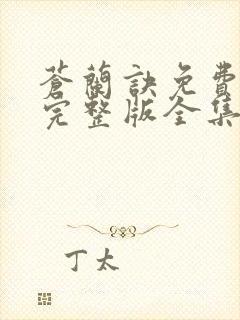 蒼蘭訣免費
完整版全集
丁太